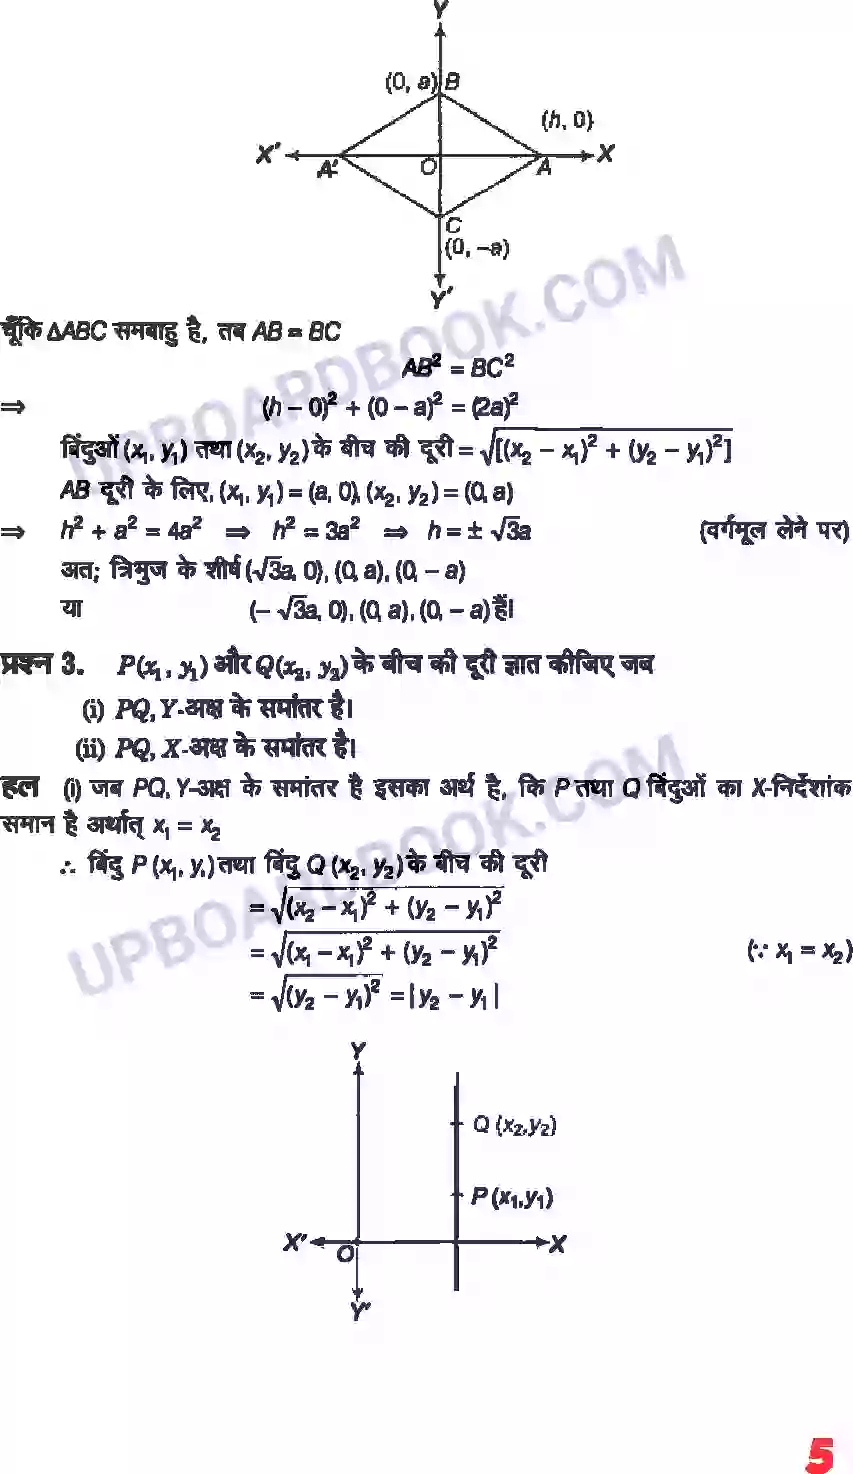 Y
(0, a) B
(h, 0)
X′ A′ O A X
C
(0, –a)
Y′
चूँकि ΔABC समबाहु है, तब AB = BC
AB² = BC²
⇒ (h – 0)² + (0 – a)² = (2a)²
बिंदुओं (x₁, y₁) तथा (x₂, y₂) के बीच की दूरी = √[(x₂ – x₁)² + (y₂ – y₁)²]
AB दूरी के लिए, (x₁, y₁) = (a, 0), (x₂, y₂) = (0, a)
⇒ h² + a² = 4a² ⇒ h² = 3a² ⇒ h = ± √3a (वर्गमूल लेने पर)
अत; त्रिभुज के शीर्ष (√3a, 0), (0, a), (0, – a)
या (– √3a, 0), (0, a), (0, – a) हैं।
प्रश्न 3. P(x₁, y₁) और Q(x₂, y₂) के बीच की दूरी ज्ञात कीजिए जब
(i) PQ, Y-अक्ष के समांतर है।
(ii) PQ, X-अक्ष के समांतर है।
हल (i) जब PQ, Y-अक्ष के समांतर है इसका अर्थ है, कि P तथा Q बिंदुओं का X-निर्देशांक
समान है अर्थात् x₁ = x₂
∴ बिंदु P (x₁, y₁) तथा बिंदु Q (x₂, y₂) के बीच की दूरी
= √(x₂ – x₁)² + (y₂ – y₁)²
= √(x₁ – x₁)² + (y₂ – y₁)² (∵ x₁ = x₂)
= √(y₂ – y₁)² = |y₂ – y₁|
Y
Q (x₂,y₂)
P (x₁,y₁)
X′ O X
Y′
UPBOARDBOOK.COM
UPBOARDBOOK.COM
5